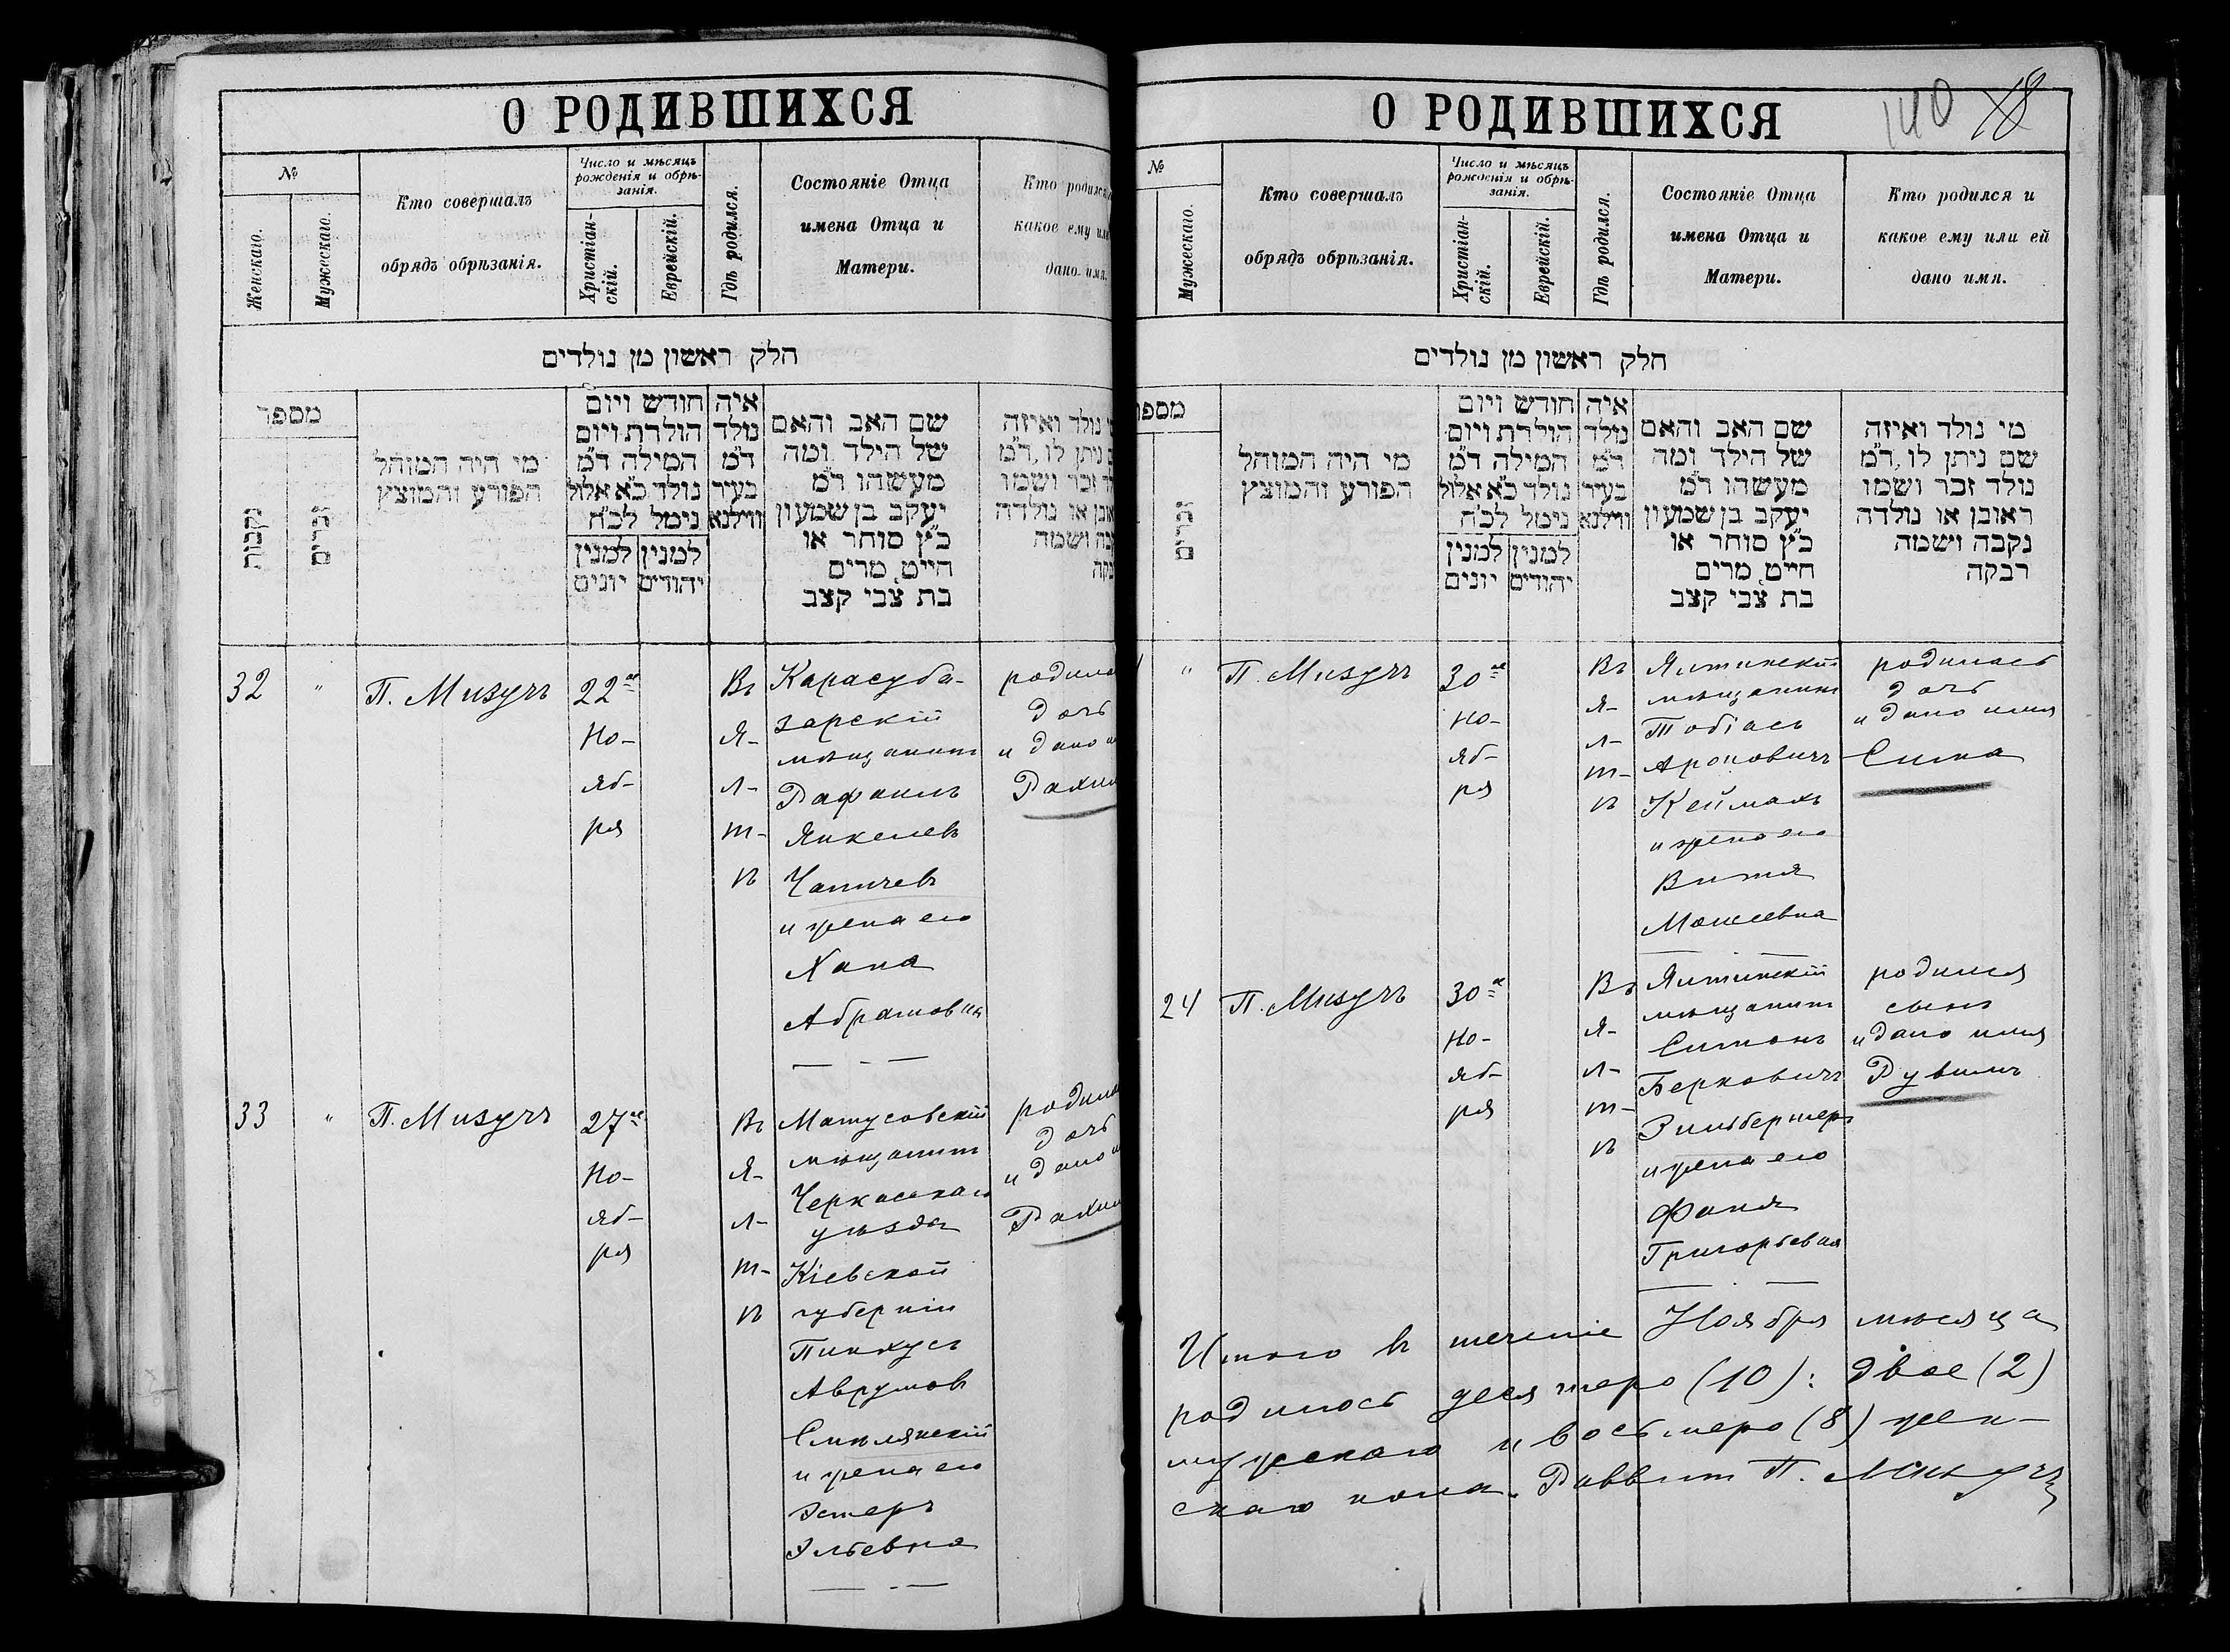 О РОДИВШИХСЯ
№
Женскаго.
Мужескаго.
Кто совершалъ
обрядъ обрѣзанія.
Число и мѣсяцъ
рожденія и обрѣ-
занія.
Христіан-
скій.
Еврейскій.
Гдѣ родился.
Состояніе Отца
имена Отца и
Матери.
Кто родился
какое ему или
дано имя.
חלק ראשון מן נולדים
מספר
נקבות
זכרים
מי היה המוהל
הפורע והמוצץ
חודש ויום
הולדת ויום
המילה ד"מ
נולד כ"א אלול
נימל לכ"ח
למנין
יונים
למנין
יהודים
איה
נולד
ד"מ
בעיר
ווילנא
שם האב והאם
של הילד ומה
מעשהו ד"מ
יעקב בן שמעון
כ"ץ סוחר או
חייט, מרים
בת צבי קצב
נולד ואיזה
ניתן לו, ד"מ
זכר ושמו
או נולדה
ושמה
32 " П. Мизучъ
22го
Но-
яб-
ря
Въ
Я-
л-
т-
ѣ
Карасуба-
зарскій
мѣщанинъ
Рафаилъ
Янкелевъ
Чапичевъ
и жена его
Хана
Абрамовна
дочь
и дано
33 " П. Мизучъ
27го
Но-
яб-
ря
Въ
Я-
л-
т-
ѣ
Матусовскій
мѣщанинъ
Черкасскаго
уѣзда
Кіевской
губерніи
Пинхусъ
Аврумовъ
Смѣлянскій
и жена его
Эстеръ
Эльевна
дочь
и дано
О РОДИВШИХСЯ
140 18
№
Мужескаго.
Кто совершалъ
обрядъ обрѣзанія.
Число и мѣсяцъ
рожденія и обрѣ-
занія.
Христіан-
скій.
Еврейскій.
Гдѣ родился.
Состояніе Отца
имена Отца и
Матери.
Кто родился и
какое ему или ей
дано имя.
חלק ראשון מן נולדים
זכרים
מי היה המוהל
הפורע והמוצץ
חודש ויום
הולדת ויום
המילה ד"מ
נולד כ"א אלול
נימל לכ"ח
למנין
יונים
למנין
יהודים
איה
נולד
ד"מ
בעיר
ווילנא
שם האב והאם
של הילד ומה
מעשהו ד"מ
יעקב בן שמעון
כ"ץ סוחר או
חייט, מרים
בת צבי קצב
מי נולד ואיזה
שם ניתן לו, ד"מ
נולד זכר ושמו
ראובן או נולדה
נקבה ושמה
רבקה
" П. Мизучъ
30го
Но-
яб-
ря
Въ
Я-
л-
т-
ѣ
Ялтинскій
мѣщанинъ
Тобіасъ
Ароновичъ
Кеймахъ
и жена его
Витя
Мошеевна
родилась
дочь
и дано имя
Сима
24 П. Мизучъ
30го
Но-
яб-
ря
Въ
Я-
л-
т-
ѣ
Ялтинскій
мѣщанинъ
Симонъ
Берковичъ
Зильбершеръ
и жена его
Фаня
Григорьевна
родился
сынъ
и дано имя
Рувимъ
Итого въ теченіе Ноября мѣсяца
родилось десятеро (10): двое (2)
мужескаго и восьмеро (8) жен-
скаго пола. Раввинъ П. Мизучъ